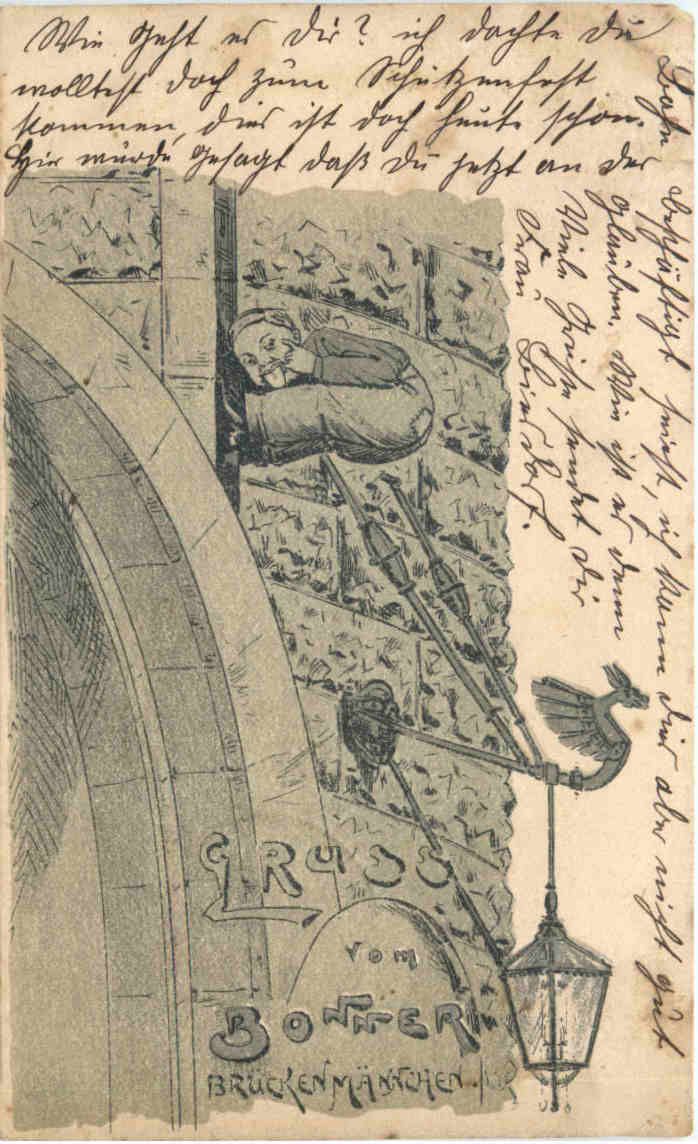 Wie geht es dir? ich dachte du
wolltest doch zum Schützenfest
kommen, dies ist doch heute schon.
Hir wurde gesagt daß du jetzt an der
Bahn beschäftigt seist, ich kann dies aber nicht gut
glauben. Wie ist es denn
Viele Grüße sendet dir
Frau
GRUSS
VOM
BONNER
BRÜCKENMÄNNCHEN